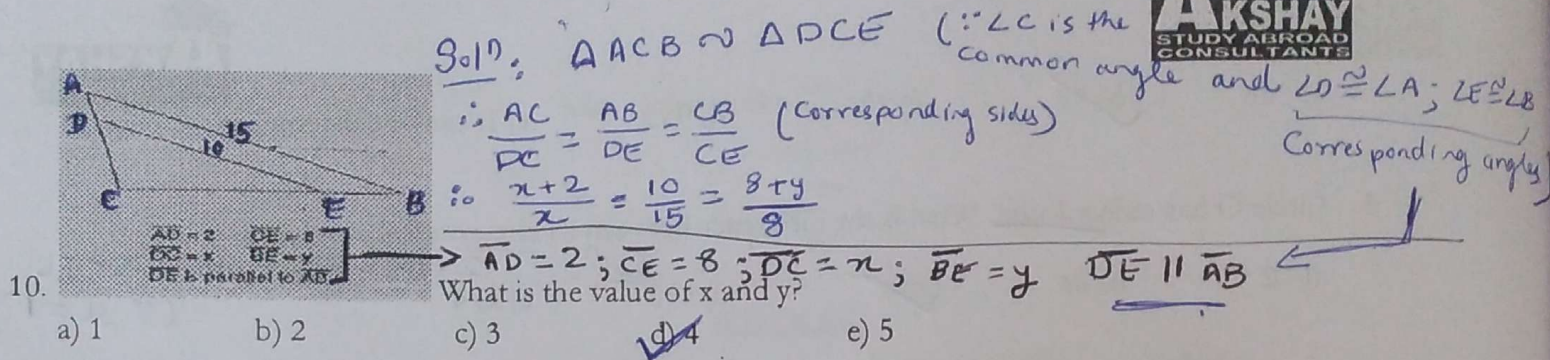 AKSHAY
STUDY ABROAD
CONSULTANTS
Solⁿ: Δ ACB ~ Δ DCE (∵ ∠C is the
common angle and ∠D ≅ ∠A; ∠E ≅ ∠B
Corresponding angles)
∴ AC/DC = AB/DE = CB/CE (Corresponding sides)
∴ x+2/x = 10/15 = 8+y/8
A
D
15
10
C
E
B
AD = 2 CE = 8
DC = x BE = y
DE is parallel to AB
AD = 2 ; CE = 8 ; DC = x ; BE = y DE || AB
10.
What is the value of x and y?
a) 1 b) 2 c) 3 d) 4 e) 5